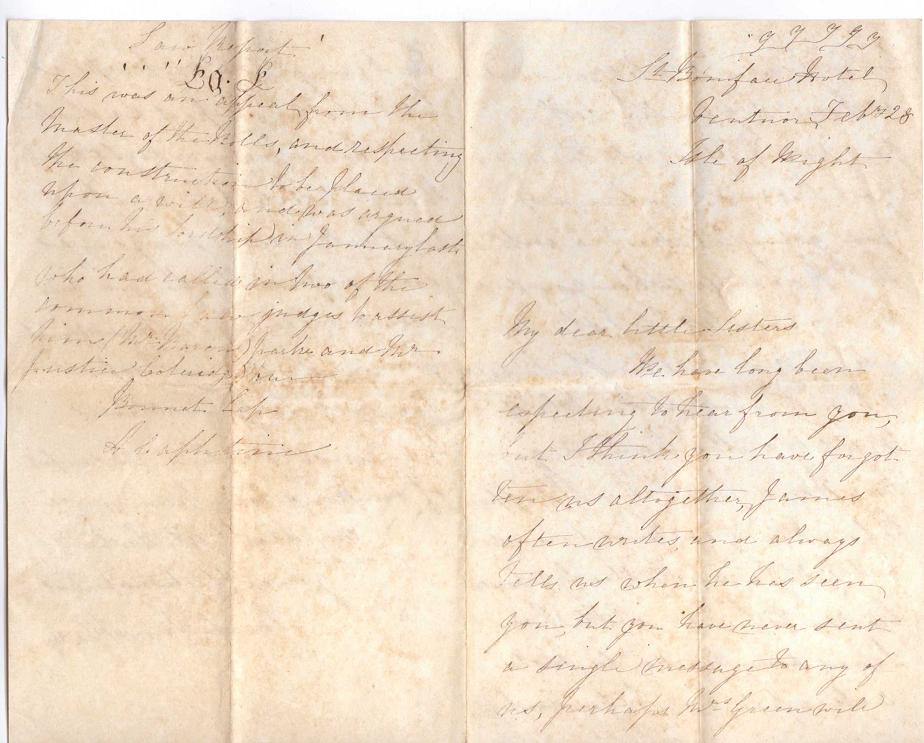 Law Report
Eq. L
This was an appeal from the
Master of the Rolls, and respecting
the construction to be placed
upon a will, and was argued
before his lordship in January last
who had called in two of the
common law judges to assist
him (Mr. Baron) Parke and Mr
Justice Coleridge
Bonnet Cap
y y y y y
St. Boniface Hotel
Ventnor Febry 28
Isle of Wight
My dear little Sisters
We have long been
expecting to hear from you,
but I think you have forgot
ten us altogether, James
often writes, and always
tells us when he has seen
you, but you have never sent
a single message to any of
us, perhaps Mrs Green will